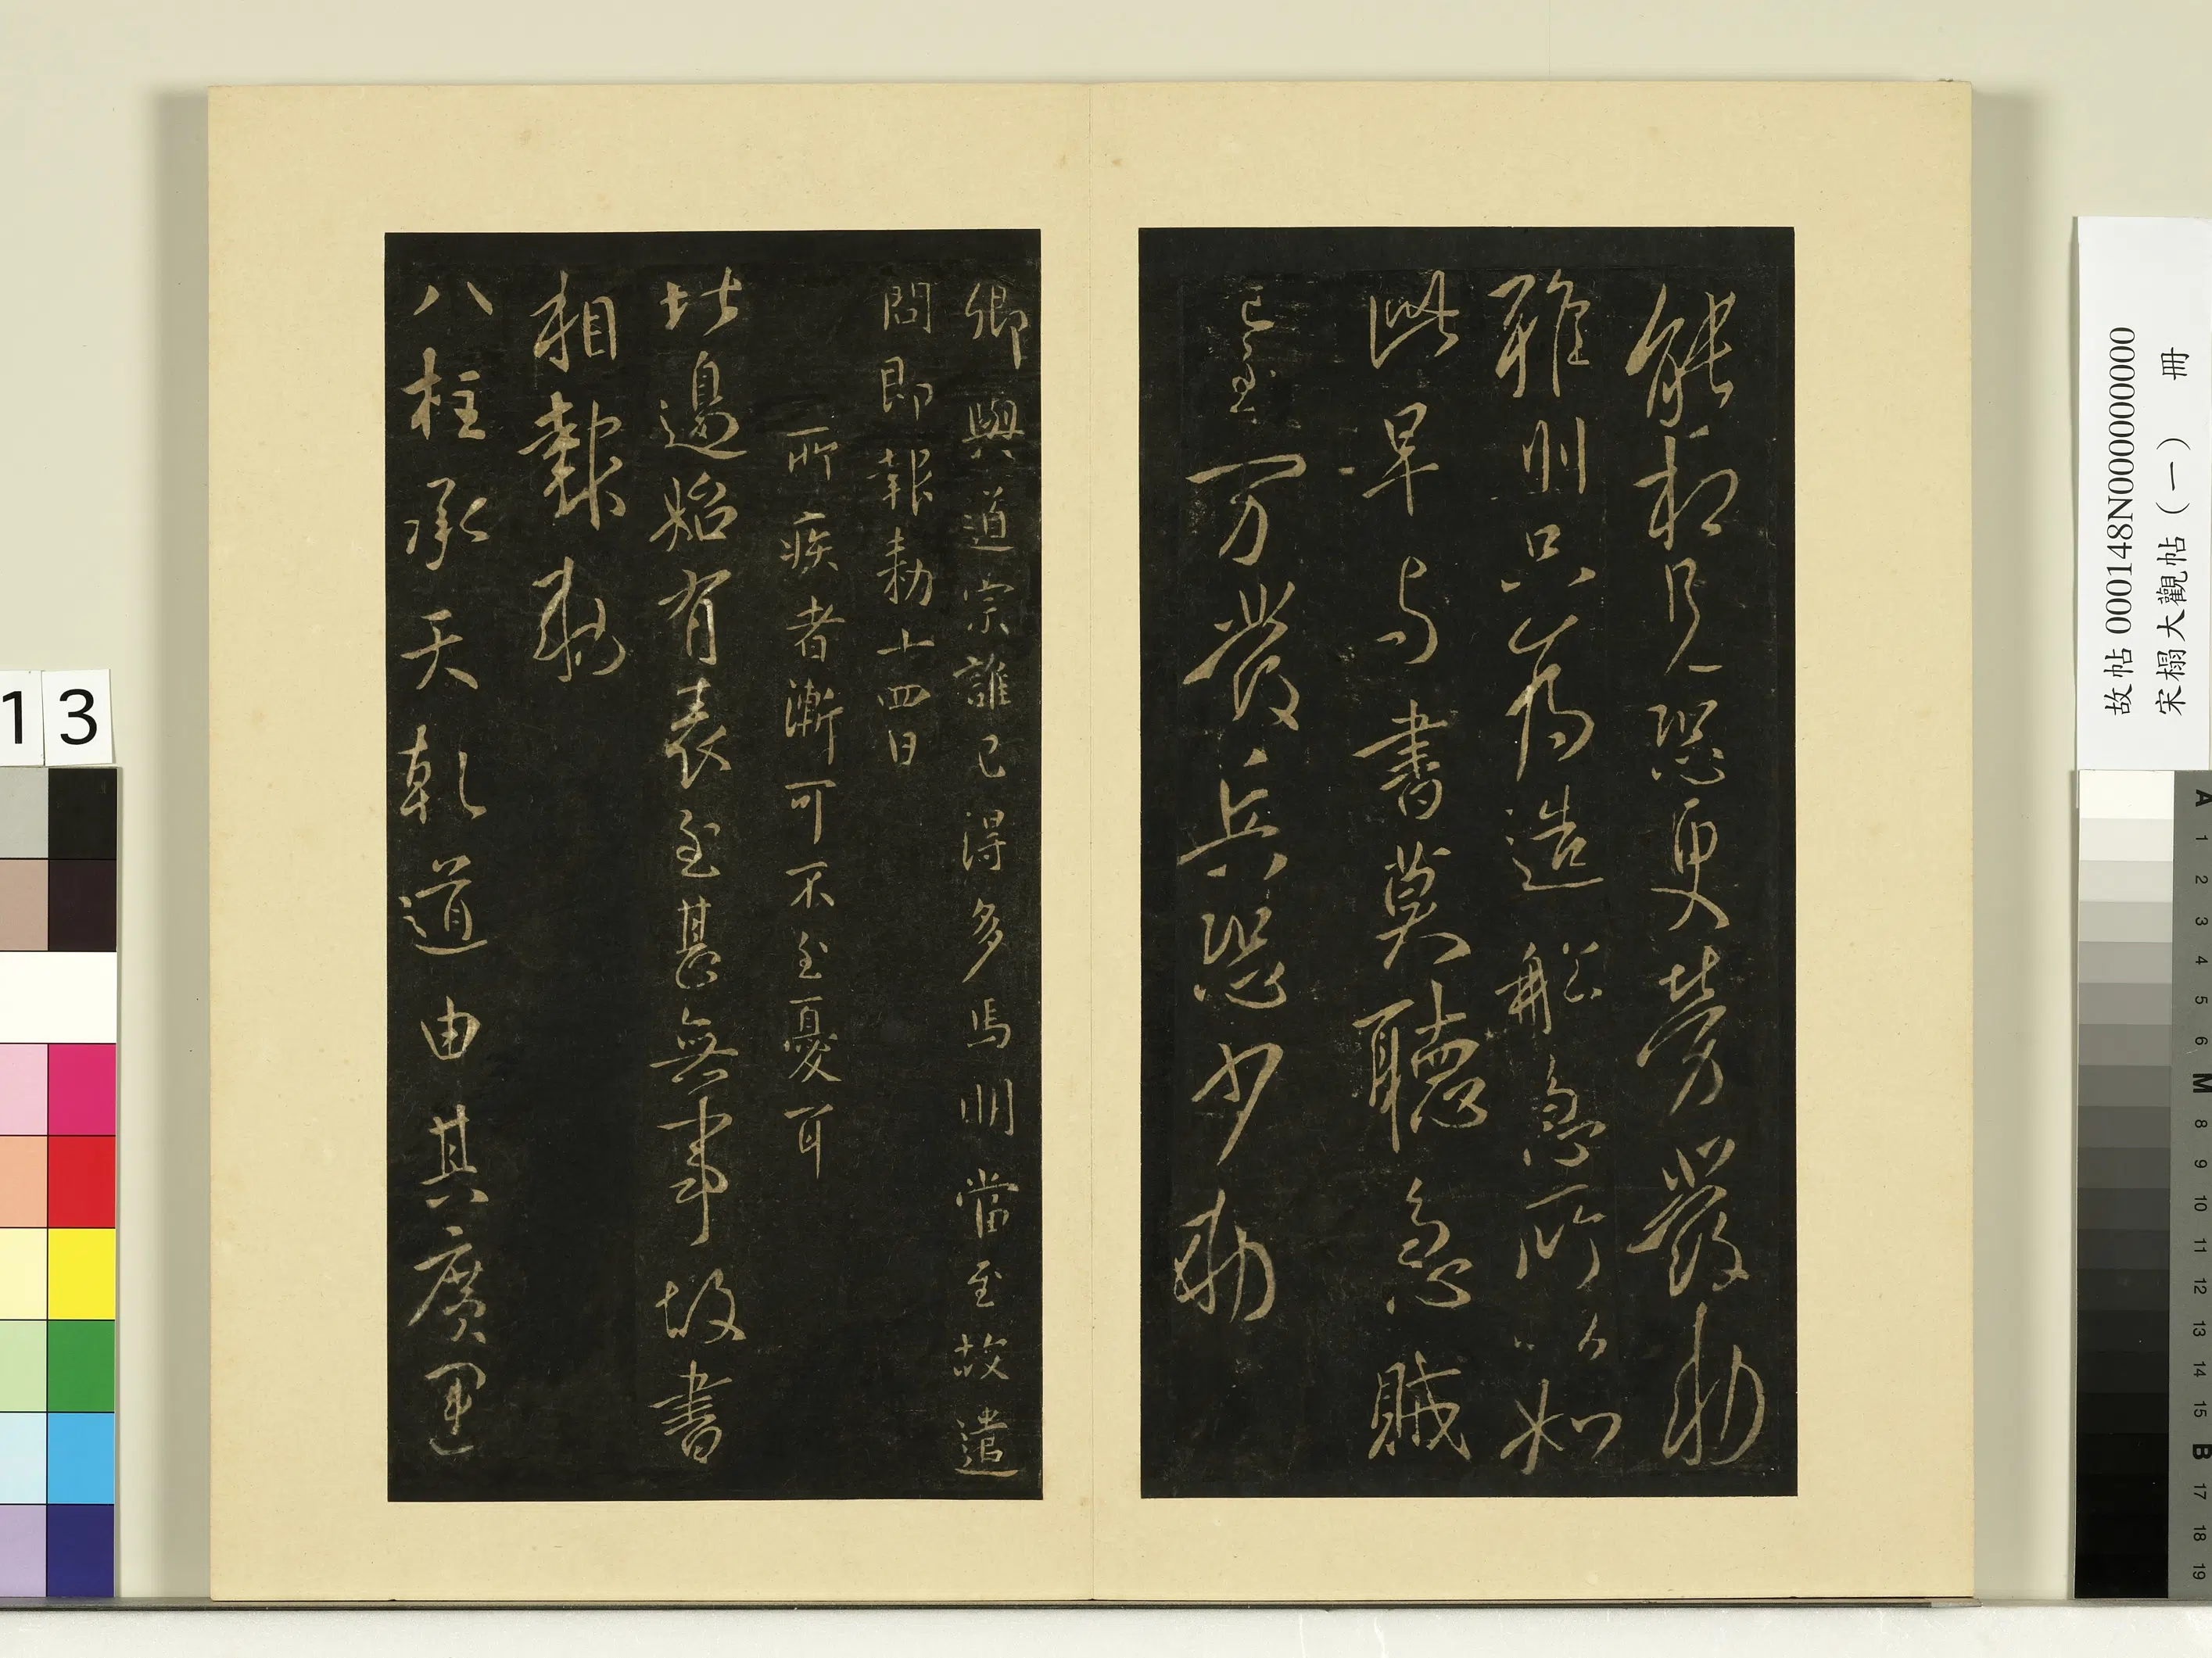 能相見恐更勞發勅
雅州只為造船急所以如
此早与書莫聽急賊
已至万發兵恐少勅
卿與道宗誰已得多馬明當至故遣
問即報勅十四日
所疾者漸可不至憂耳
比邊始有表至甚無事故書
相報勅
八柱承天乾道由其廣運
故帖 000148N000000000
宋榻大觀帖（一） 冊
13
A 1 2 3 4 5 6 M 8 9 10 11 12 13 14 15 B 17 18 19